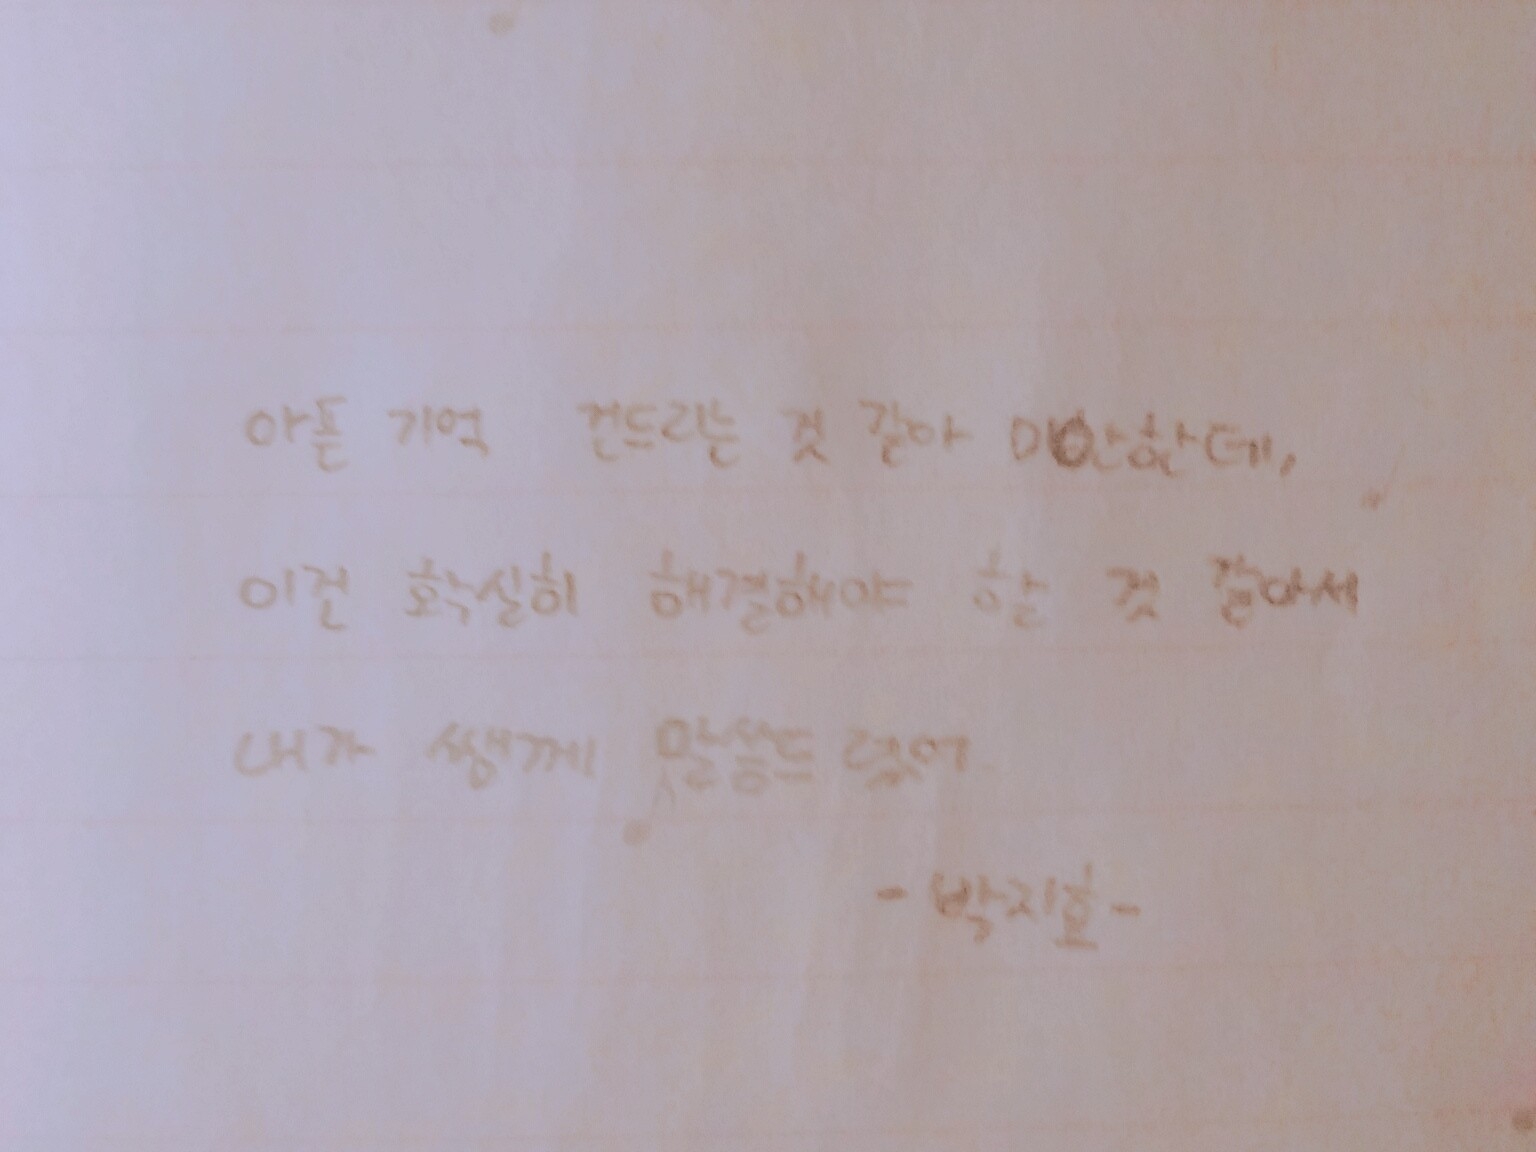 아픈 기억 건드리는 것 같아 미안한데,
이건 확실히 해결해야 할 것 같아서
내가 쌤께 말씀드렸어
- 박지호 -